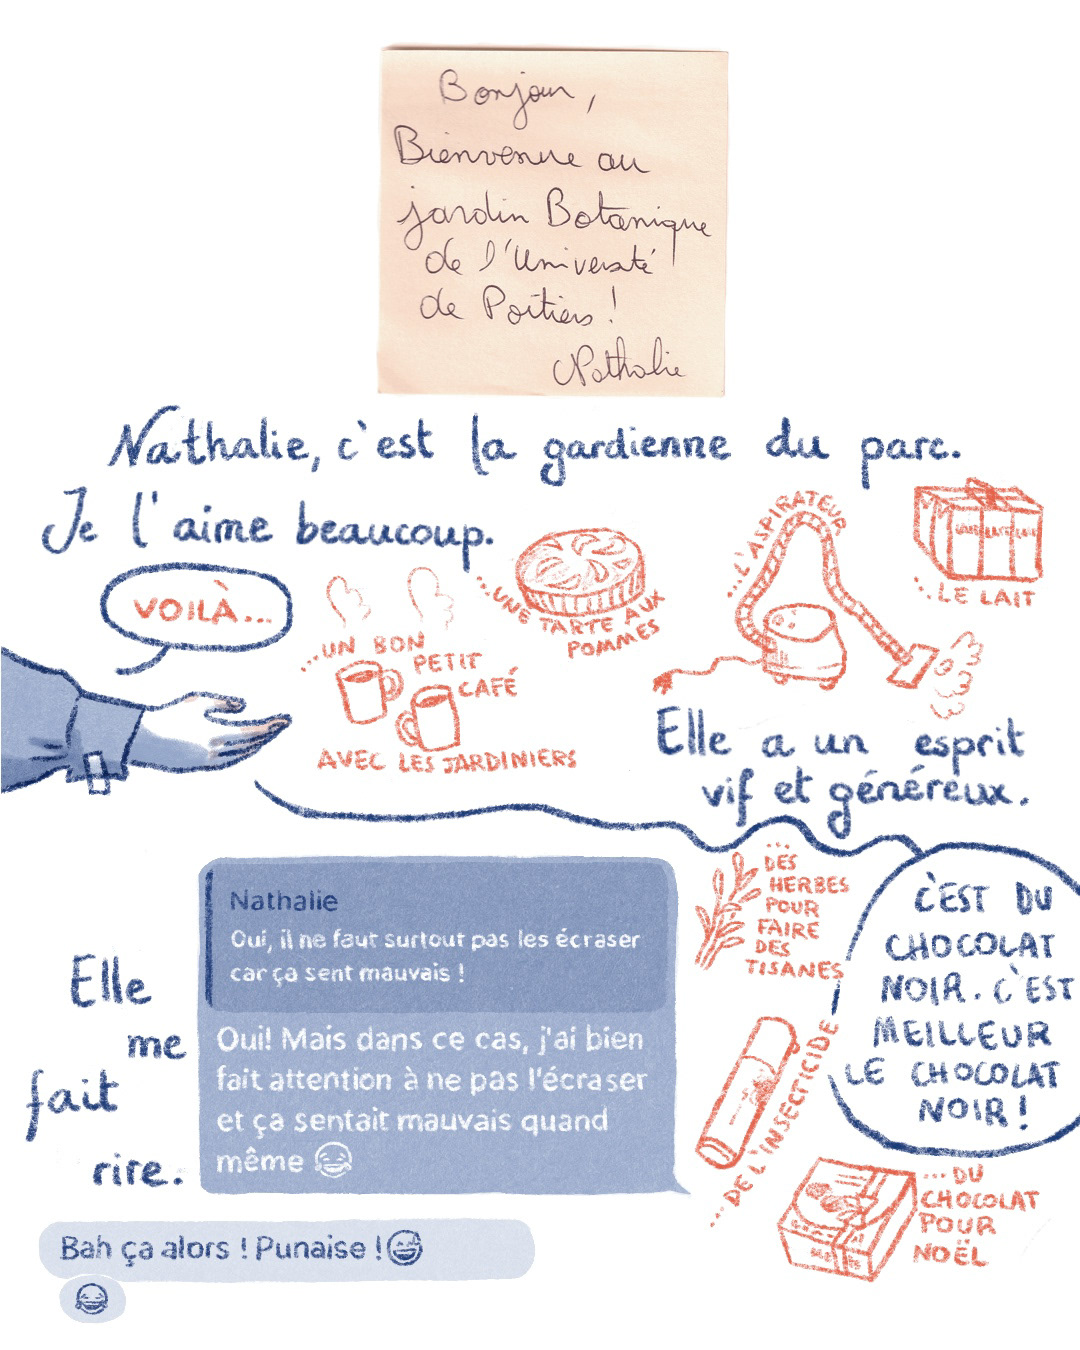 Bonjour,
Bienvenue au
jardin Botanique
de l'Université
de Poitiers !
Nathalie
Nathalie, c'est la gardienne du parc.
Je l'aime beaucoup.
VOILÀ...
...UN BON
PETIT
CAFÉ
AVEC LES JARDINIERS
...UNE TARTE AUX
POMMES
...L'ASPIRATEUR
...LE LAIT
Elle a un esprit
vif et généreux.
...DES
HERBES
POUR
FAIRE
DES
TISANES
...DE L'INSECTICIDE
...DU
CHOCOLAT
POUR
NOËL
C'EST DU
CHOCOLAT
NOIR. C'EST
MEILLEUR
LE CHOCOLAT
NOIR !
Elle
me
fait
rire.
Nathalie
Oui, il ne faut surtout pas les écraser
car ça sent mauvais !
Oui! Mais dans ce cas, j'ai bien
fait attention à ne pas l'écraser
et ça sentait mauvais quand
même 😂
Bah ça alors ! Punaise ! 😅
😂